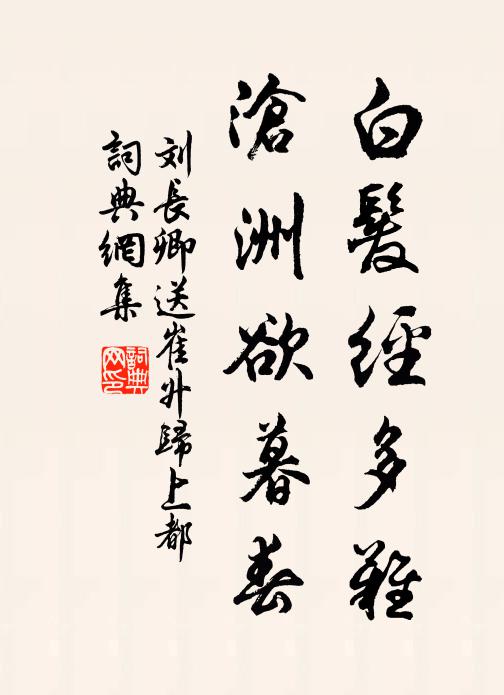 白髮經多難
滄洲欲暮春
刘長卿送崔升歸上都
詞典網集
詞典
网印